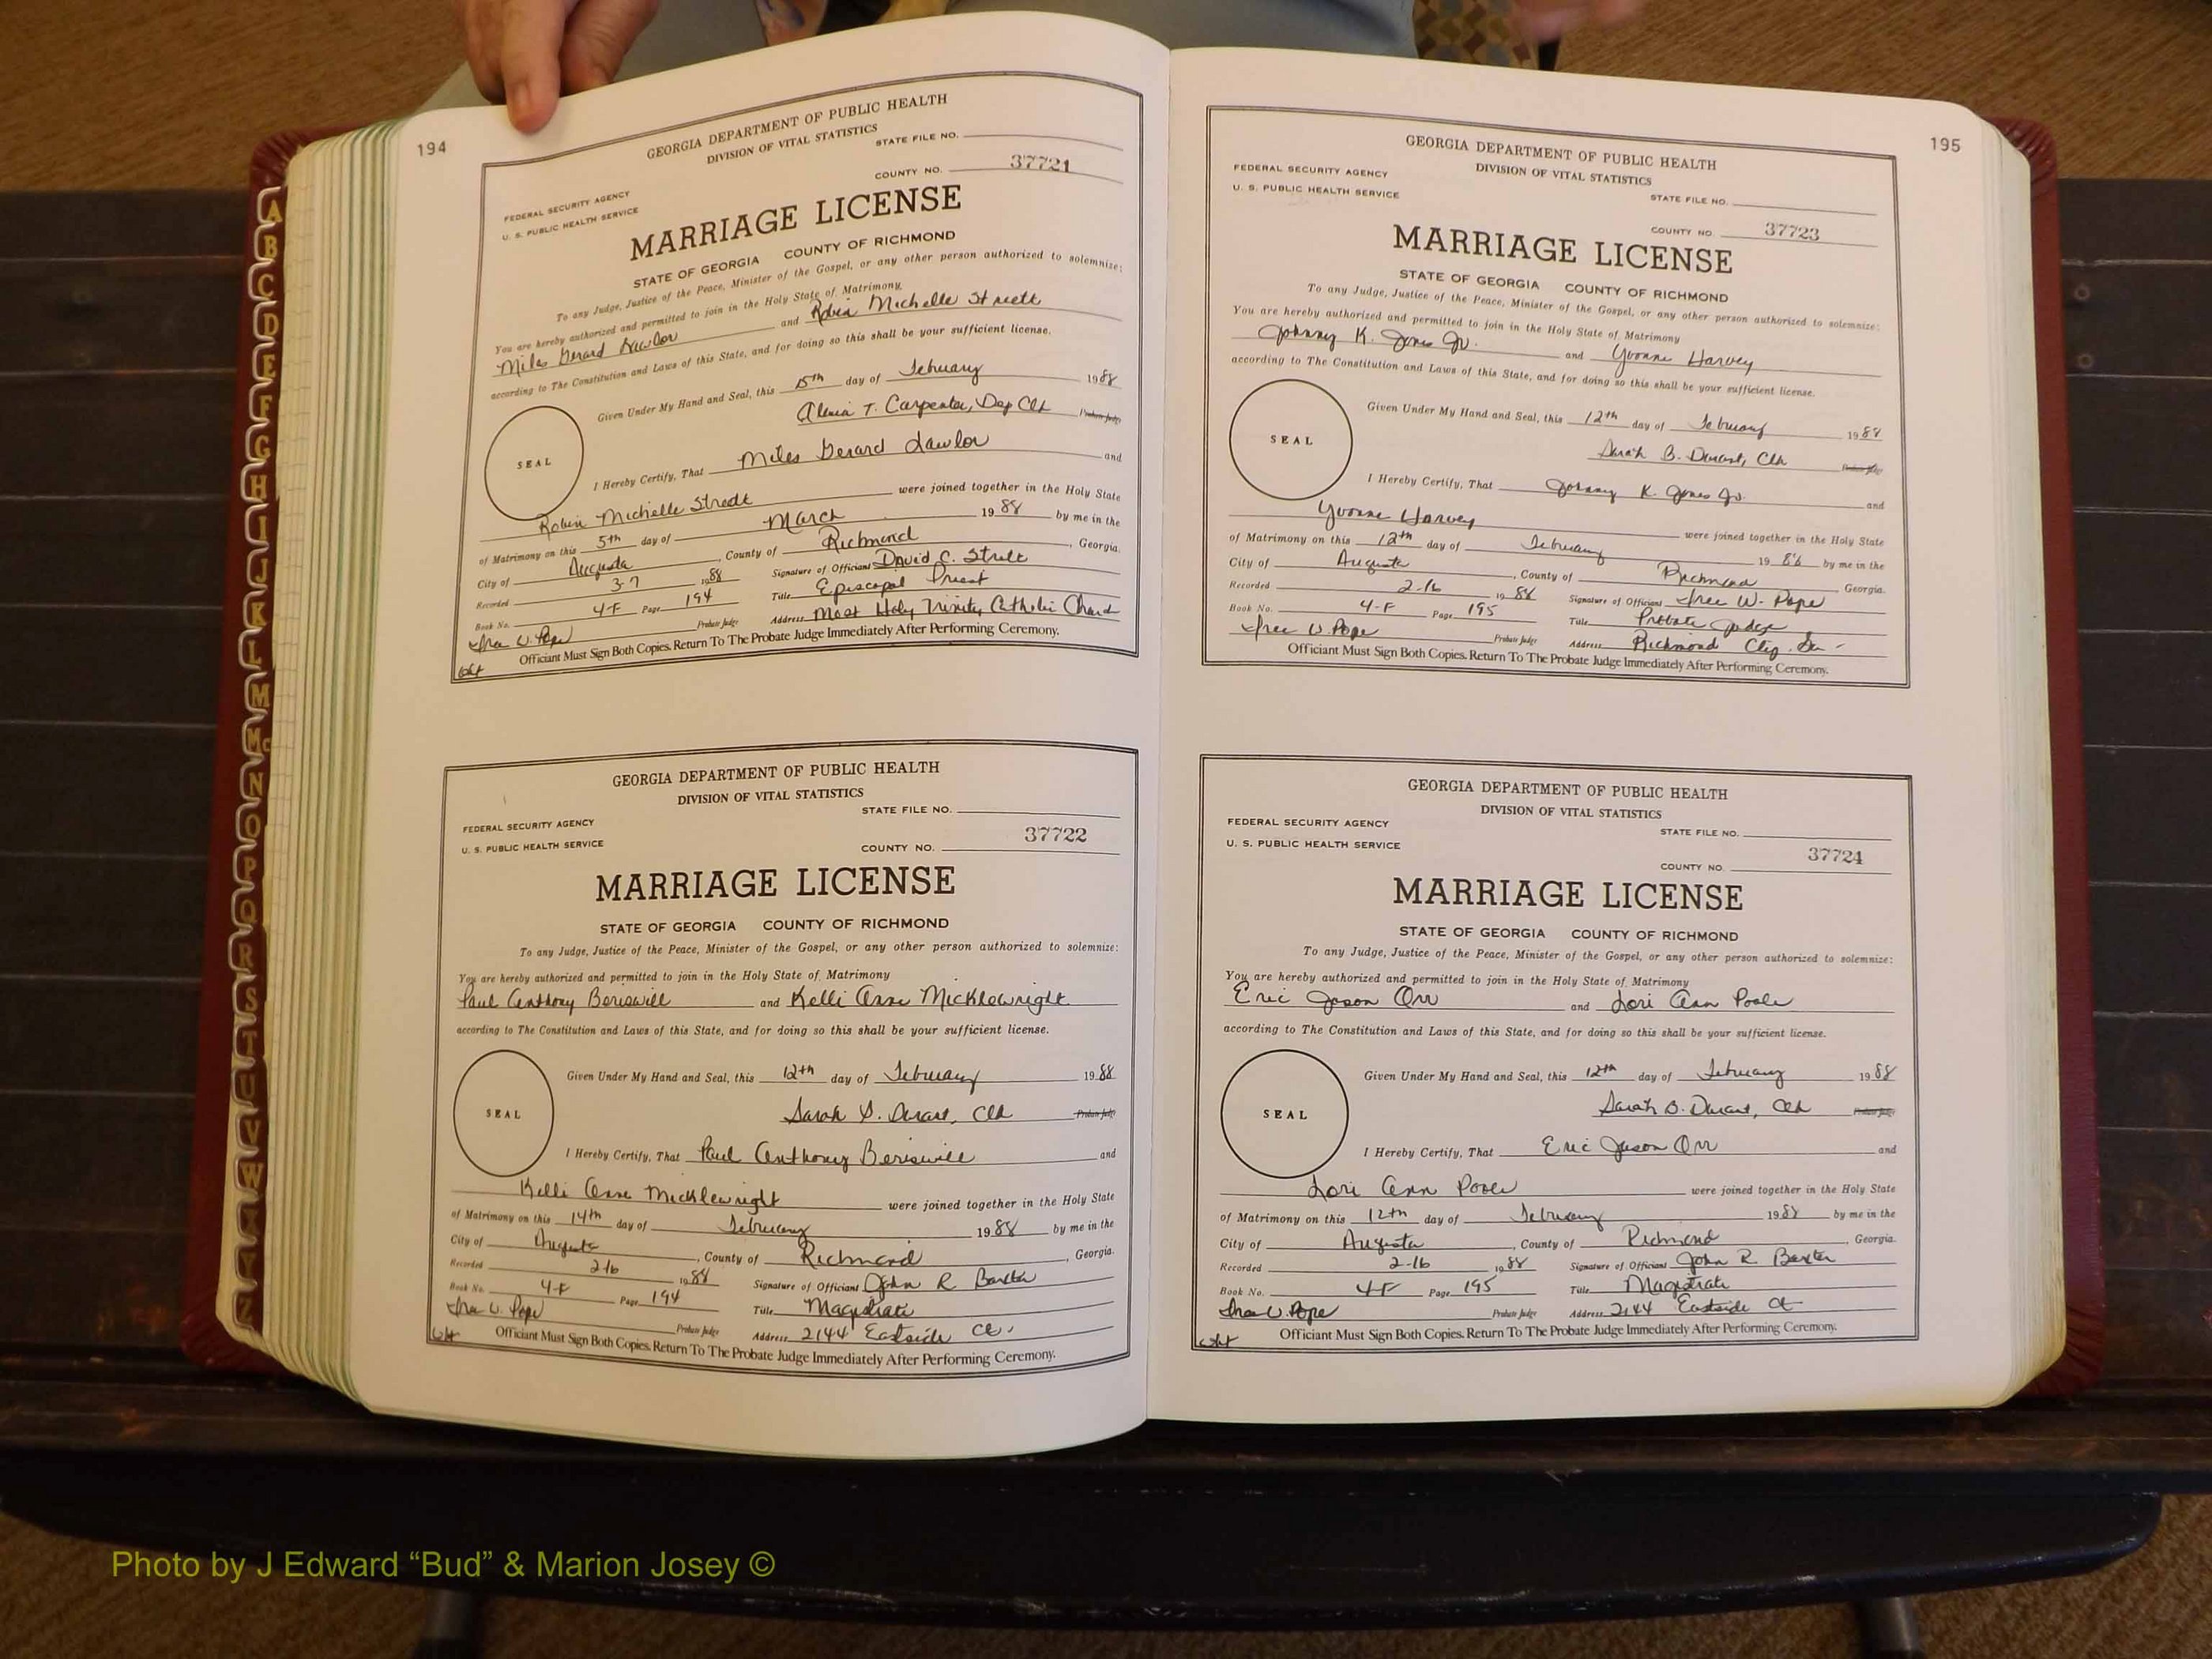 194
GEORGIA DEPARTMENT OF PUBLIC HEALTH
DIVISION OF VITAL STATISTICS
STATE FILE NO.
COUNTY NO. 37721
FEDERAL SECURITY AGENCY
U. S. PUBLIC HEALTH SERVICE
MARRIAGE LICENSE
STATE OF GEORGIA COUNTY OF RICHMOND
To any Judge, Justice of the Peace, Minister of the Gospel, or any other person authorized to solemnize:
You are hereby authorized and permitted to join in the Holy State of Matrimony
Miles Gerard Lawlor and Robin Michelle Strett
according to The Constitution and Laws of this State, and for doing so this shall be your sufficient license.
Given Under My Hand and Seal, this 15th day of February 1988
T. Carpenter, Dep Clk Probate Judge
SEAL
I Hereby Certify, That Miles Gerard Lawlor and
Robin Michelle Strett were joined together in the Holy State
of Matrimony on this 5th day of March 1988 by me in the
City of Augusta, County of Richmond, Georgia.
Recorded 3-7 1988 Signature of Officiant David C. Strett
Book No. 4-F Page 194 Title Episcopal Priest
Probate Judge Address Most Holy Trinity Catholic Church
Officiant Must Sign Both Copies. Return To The Probate Judge Immediately After Performing Ceremony.
GEORGIA DEPARTMENT OF PUBLIC HEALTH
DIVISION OF VITAL STATISTICS
STATE FILE NO.
FEDERAL SECURITY AGENCY
U. S. PUBLIC HEALTH SERVICE
COUNTY NO. 37722
MARRIAGE LICENSE
STATE OF GEORGIA COUNTY OF RICHMOND
To any Judge, Justice of the Peace, Minister of the Gospel, or any other person authorized to solemnize:
You are hereby authorized and permitted to join in the Holy State of Matrimony
Paul Anthony Beriswill and Kelli Anne Micklewright
according to The Constitution and Laws of this State, and for doing so this shall be your sufficient license.
Given Under My Hand and Seal, this 12th day of February 1988
Sarah B. Durant, Clk Probate Judge
SEAL
I Hereby Certify, That Paul Anthony Beriswill and
Kelli Anne Micklewright were joined together in the Holy State
of Matrimony on this 14th day of February 1988 by me in the
City of Augusta, County of Richmond, Georgia.
Recorded 2-16 1988 Signature of Officiant John R. Baxter
Book No. 4-F Page 194 Title Magistrate
W. Pope Probate Judge Address 2144 Eastside Ct.
Officiant Must Sign Both Copies. Return To The Probate Judge Immediately After Performing Ceremony.
195
GEORGIA DEPARTMENT OF PUBLIC HEALTH
DIVISION OF VITAL STATISTICS
FEDERAL SECURITY AGENCY
U. S. PUBLIC HEALTH SERVICE
STATE FILE NO.
COUNTY NO. 37723
MARRIAGE LICENSE
STATE OF GEORGIA COUNTY OF RICHMOND
To any Judge, Justice of the Peace, Minister of the Gospel, or any other person authorized to solemnize:
You are hereby authorized and permitted to join in the Holy State of Matrimony
Johnny K. Jones Jr. and Yvonne Harvey
according to The Constitution and Laws of this State, and for doing so this shall be your sufficient license.
Given Under My Hand and Seal, this 12th day of February 1988
Sarah B. Durant, Clk Probate Judge
SEAL
I Hereby Certify, That Johnny K. Jones Jr. and
Yvonne Harvey were joined together in the Holy State
of Matrimony on this 12th day of February 1988 by me in the
City of Augusta, County of Richmond Georgia.
Recorded 2-16 1988 Signature of Officiant W. Pope
Book No. 4-F Page 195 Title Probate Judge
W. Pope Probate Judge Address Richmond
Officiant Must Sign Both Copies. Return To The Probate Judge Immediately After Performing Ceremony.
GEORGIA DEPARTMENT OF PUBLIC HEALTH
DIVISION OF VITAL STATISTICS
FEDERAL SECURITY AGENCY
STATE FILE NO.
U. S. PUBLIC HEALTH SERVICE
COUNTY NO. 37724
MARRIAGE LICENSE
STATE OF GEORGIA COUNTY OF RICHMOND
To any Judge, Justice of the Peace, Minister of the Gospel, or any other person authorized to solemnize:
You are hereby authorized and permitted to join in the Holy State of Matrimony
Eric Jason Orr and Lori Ann Poole
according to The Constitution and Laws of this State, and for doing so this shall be your sufficient license.
Given Under My Hand and Seal, this 12th day of February 1988
Sarah B. Durant, Clk Probate Judge
SEAL
I Hereby Certify, That Eric Jason Orr and
Lori Ann Poole were joined together in the Holy State
of Matrimony on this 12th day of February 1988 by me in the
City of Augusta, County of Richmond, Georgia.
Recorded 2-16 1988 Signature of Officiant John R. Baxter
Book No. 4-F Page 195 Title Magistrate
W. Pope Probate Judge Address 2144 Eastside Ct
Officiant Must Sign Both Copies. Return To The Probate Judge Immediately After Performing Ceremony.
A
B
C
D
E
F
G
H
I
J
K
L
M
Mc
N
O
P
Q
R
S
T
U
V
W
X
Y
Z
Photo by J Edward “Bud” & Marion Josey ©